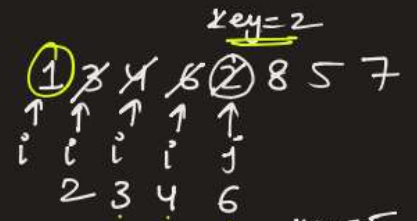 key=2
1 3 4 6 2 8 5 7
↑ ↑ ↑ ↑ ↑
i i i i j
2 3 4 6